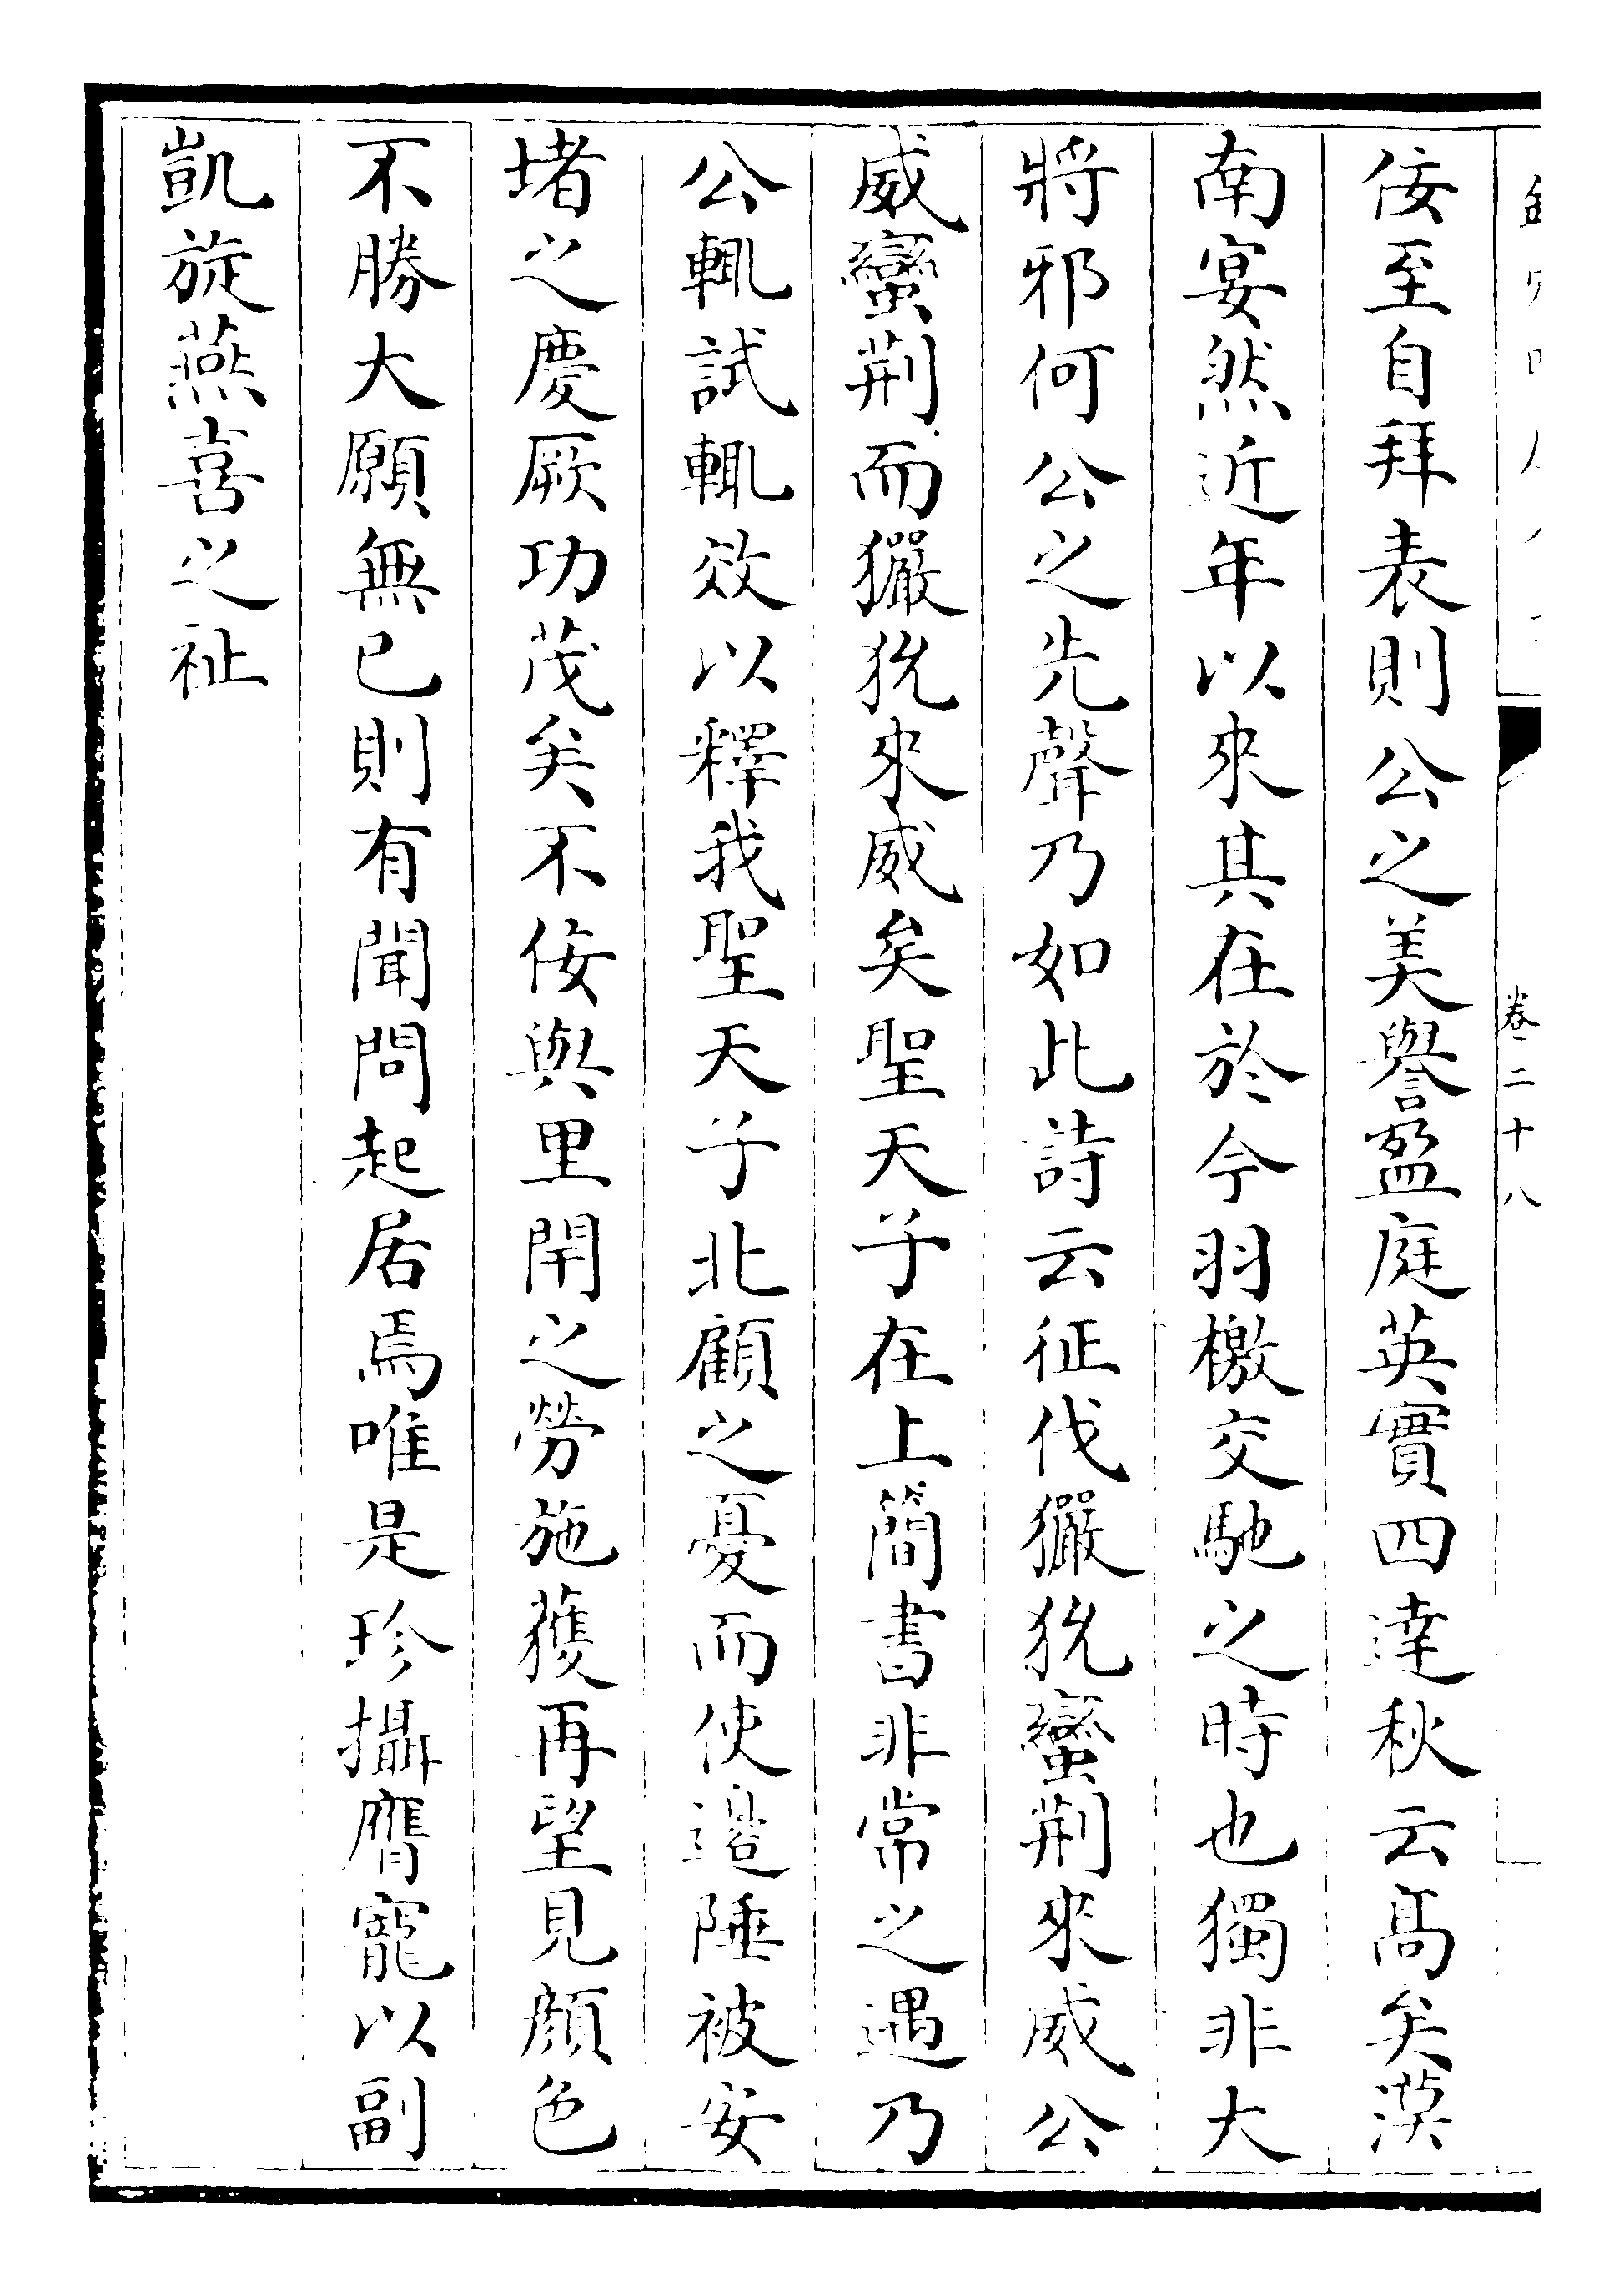 佞至自拜表則公之美譽盈庭英實四達秋云高矣漠
南宴然近年以來其在於今羽檄交馳之時也獨非大
將邪何公之先聲乃如此詩云征伐玁狁蠻荆來威公
威蠻荆而玁狁來威矣聖天子在上簡書非常之遇乃
公輒試輒效以釋我聖天子北顧之憂而使邉陲被安
堵之慶厥功茂矣不佞與里閈之勞施獲再望見顔色
不勝大願無已則有聞問起居焉唯是珍攝膺寵以副
凱旋燕喜之祉
卷二十八